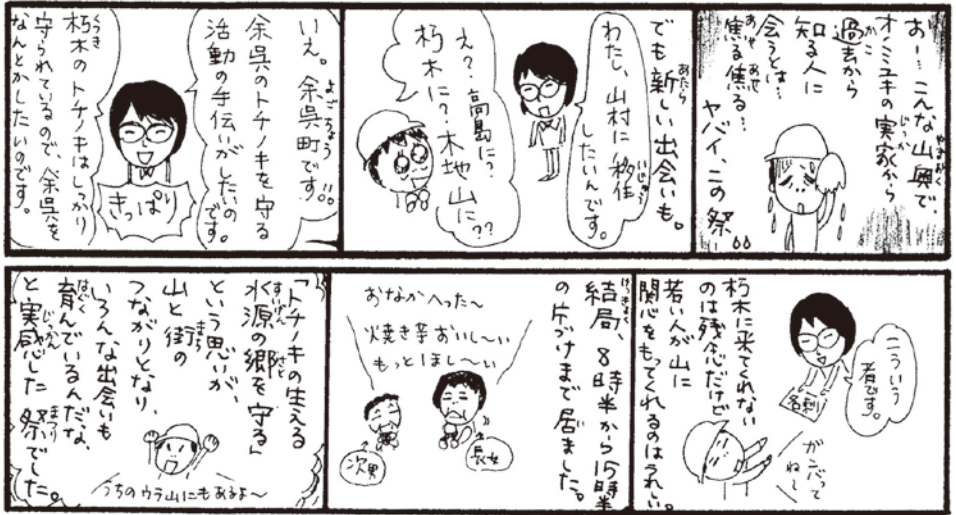 おー…こんな山奥で、
オンミユキの実家から
過去から
知る人に
会うとは…
焦る焦る…
ヤバイ、この祭…
でも新しい出会いも。
わたし、山村に移住
したいんです。
え?高島に?
朽木に?木地山に??
いえ。余呉町です。
余呉のトチノキを守る
活動の手伝いがしたいの
です。
きっぱり
朽木のトチノキはしっかり
守られているので、余呉を
なんとかしたいのです。
こういう
者です。
名刺
ガンバって
ねー
朽木に来てくれない
のは残念だけど
若い人が山に
関心をもってくれるのはうれしい。
結局、8時半から15時半
の片づけまで居ました。
おなかへった〜
焼き芋おいし〜い
もっとほし〜い
長女
次男
「トチノキの生える
水源の郷を守る」
という思いが、
山と街の
つながりとなり、
いろんな出会いも
育んでいるんだな、
と実感した祭でした。
うちのウラ山にもあるよ〜